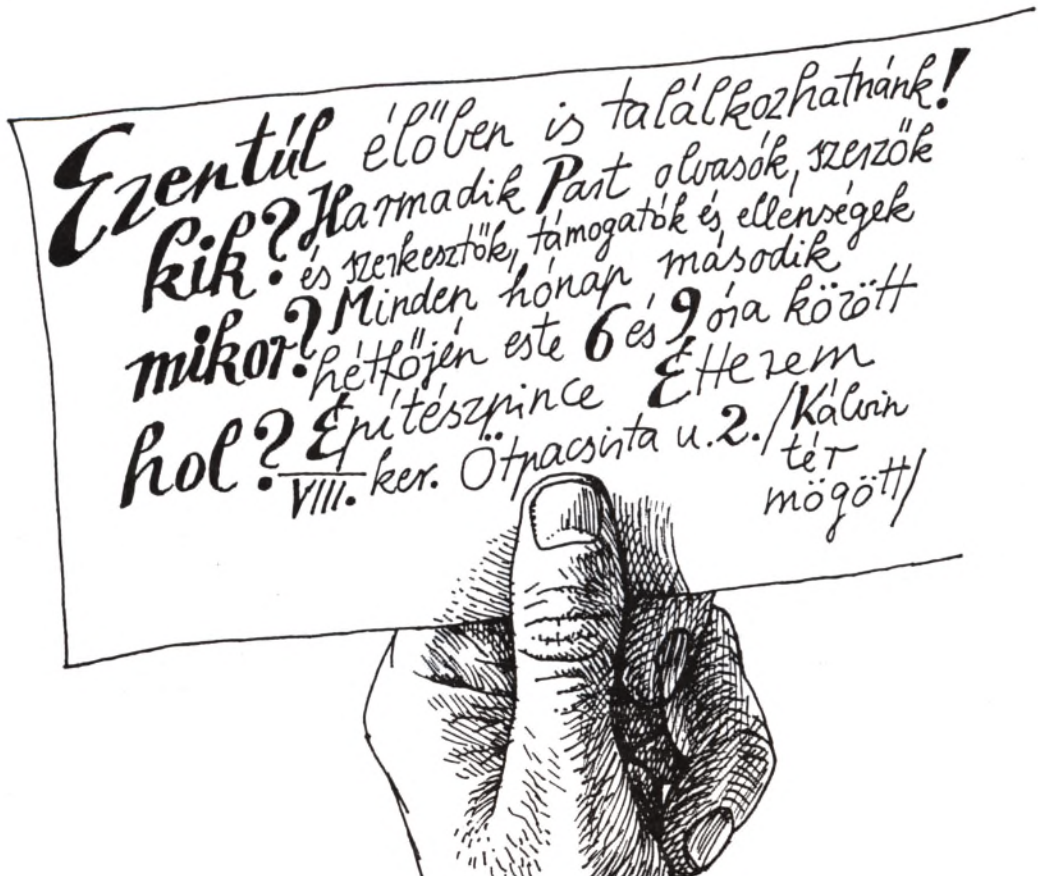 Ezentúl élőben is találkozhatnánk!
kik? Harmadik Part olvasók, szerzők
és szerkesztők, támogatók és ellenségek
mikor? Minden hónap második
hétfőjén este 6 és 9 óra között
hol? Építészpince Étterem
VIII. ker. Ötpacsirta u. 2. /Kálvin
tér
mögött/